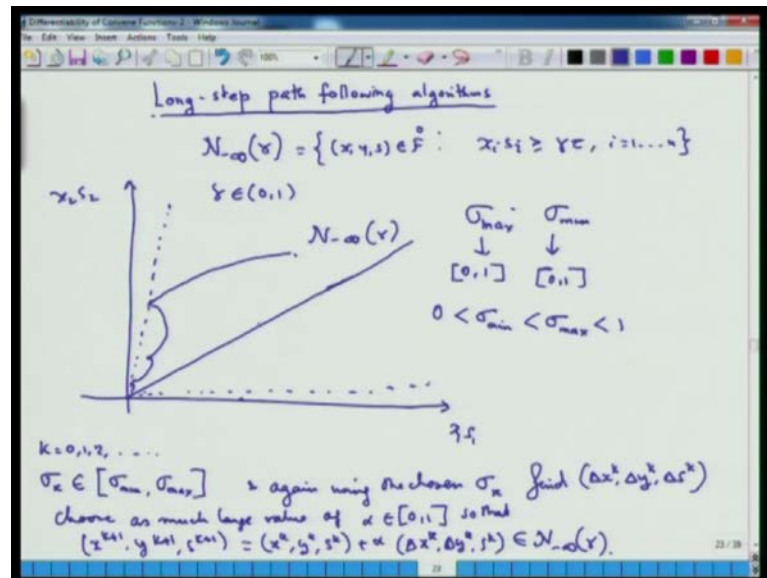 Differentiability of Convex Functions-2 - Windows Journal
File Edit View Insert Actions Tools Help
100%
Long-step path following algorithms
N₋∞(γ) = {(x, y, s) ∈ F° : xᵢ sᵢ ≥ γτ, i=1....n}
x₂s₂
γ ∈ (0,1)
N₋∞(γ)
σmax σmin
↓ ↓
[0,1] [0,1]
0 < σmin < σmax < 1
x₁s₁
K=0,1,2, ....
σₖ ∈ [σmin, σmax] & again using the chosen σₖ find (Δxᵏ, Δyᵏ, Δsᵏ)
choose as much large value of α ∈ [0,1] so that
(xᵏ⁺¹, yᵏ⁺¹, sᵏ⁺¹) = (xᵏ, yᵏ, sᵏ) + α (Δxᵏ, Δyᵏ, sᵏ) ∈ N₋∞(γ).
23 / 38
23